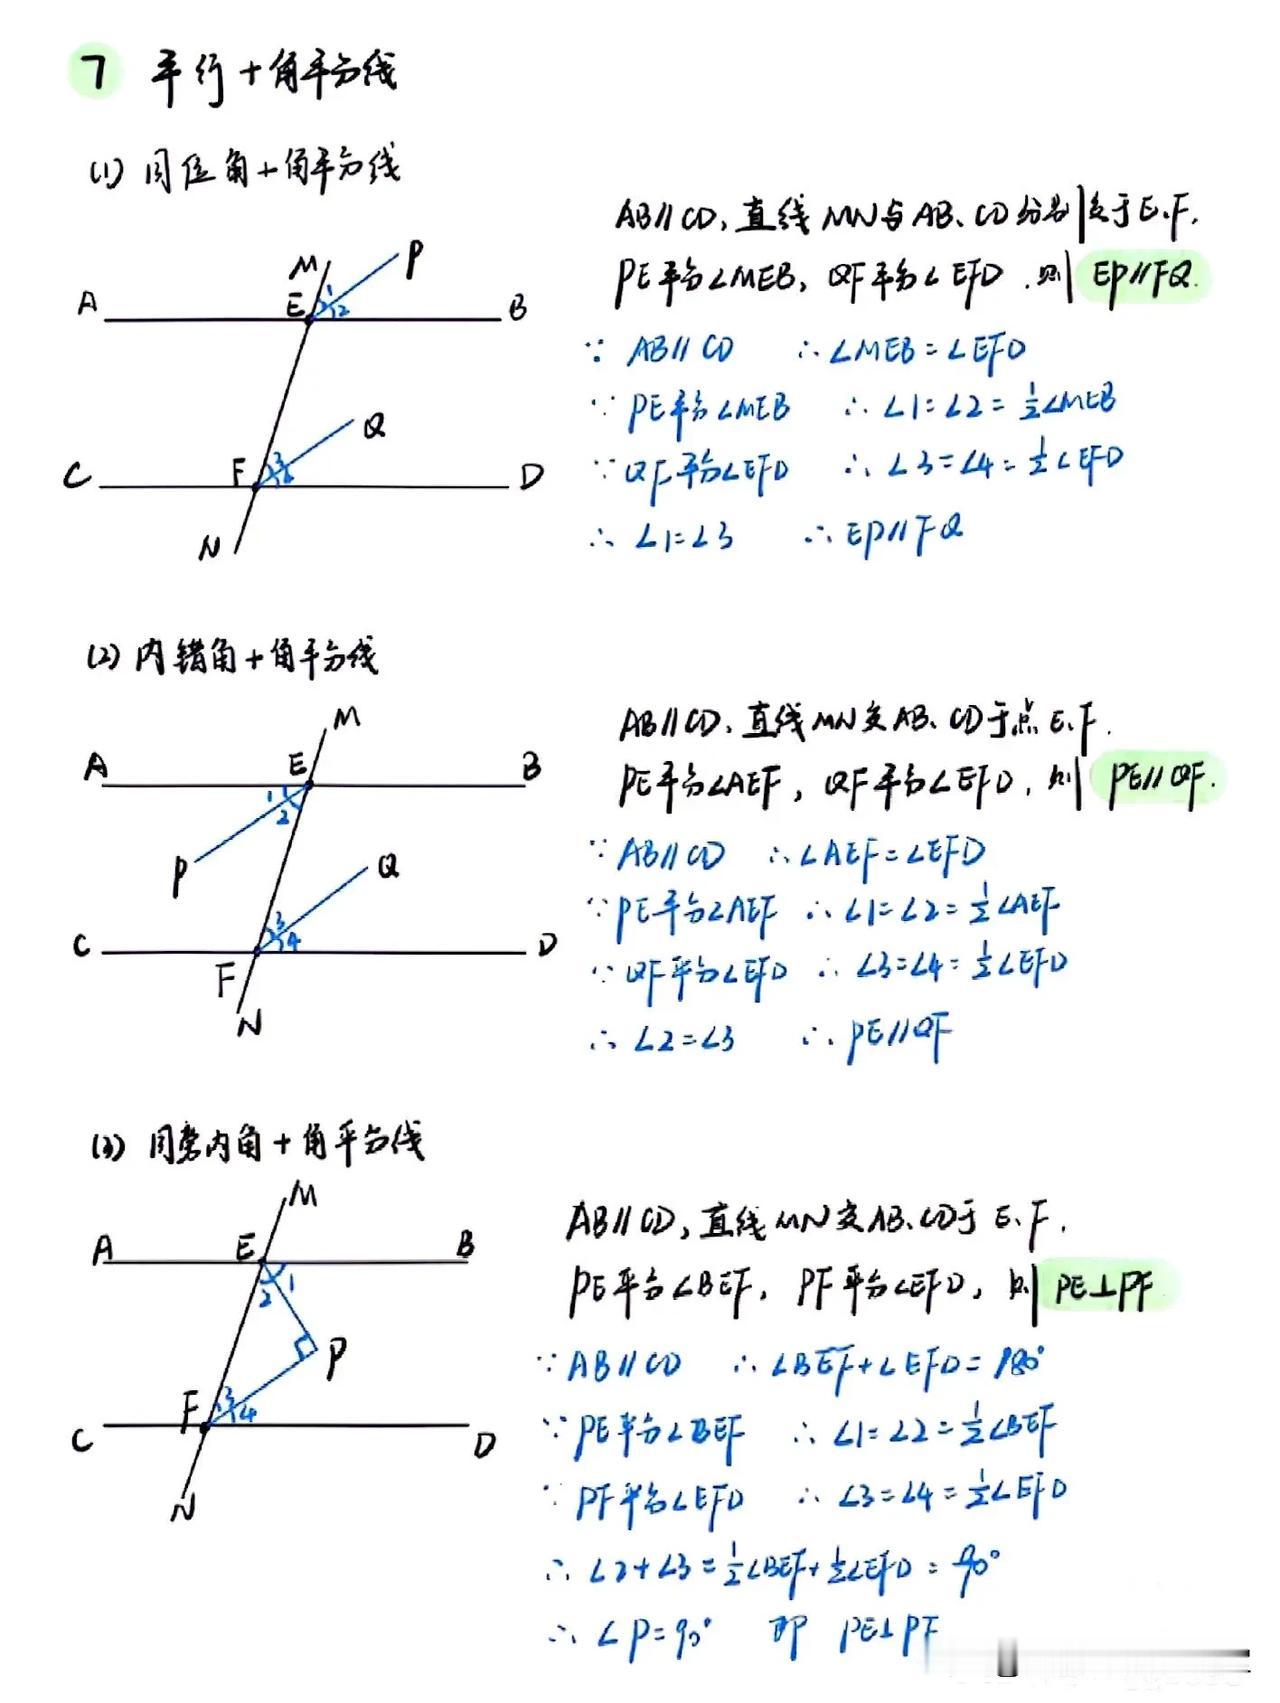 7 平行+角平分线
(1) 同位角+角平分线
AB∥CD, 直线MN与AB、CD分别交于E、F.
PE平分∠MEB, QF平分∠EFD, 则 EP∥FQ.
∵ AB∥CD ∴∠MEB=∠EFD
∵ PE平分∠MEB ∴ ∠1=∠2=½∠MEB
∵ QF平分∠EFD ∴ ∠3=∠4=½∠EFD
∴ ∠1=∠3 ∴ EP∥FQ
M
P
A
E
1
2
B
Q
C
F
3
D
N
(2) 内错角+角平分线
AB∥CD, 直线MN交AB、CD于点E、F.
PE平分∠AEF, QF平分∠EFD, 则 PE∥QF.
∵ AB∥CD ∴∠AEF=∠EFD
∵ PE平分∠AEF ∴ ∠1=∠2=½∠AEF
∵ QF平分∠EFD ∴ ∠3=∠4=½∠EFD
∴ ∠2=∠3 ∴ PE∥QF
M
A
E
B
1
2
P
Q
C
3
4
D
F
N
(3) 同旁内角+角平分线
AB∥CD, 直线MN交AB、CD于E、F.
PE平分∠BEF, PF平分∠EFD, 则 PE⊥PF
∵ AB∥CD ∴ ∠BEF+∠EFD=180°
∵ PE平分∠BEF ∴ ∠1=∠2=½∠BEF
∵ PF平分∠EFD ∴ ∠3=∠4=½∠EFD
∴ ∠2+∠3=½∠BEF+½∠EFD=90°
∴ ∠P=90° 即 PE⊥PF
M
A
E
B
1
2
P
F
3
4
C
D
N